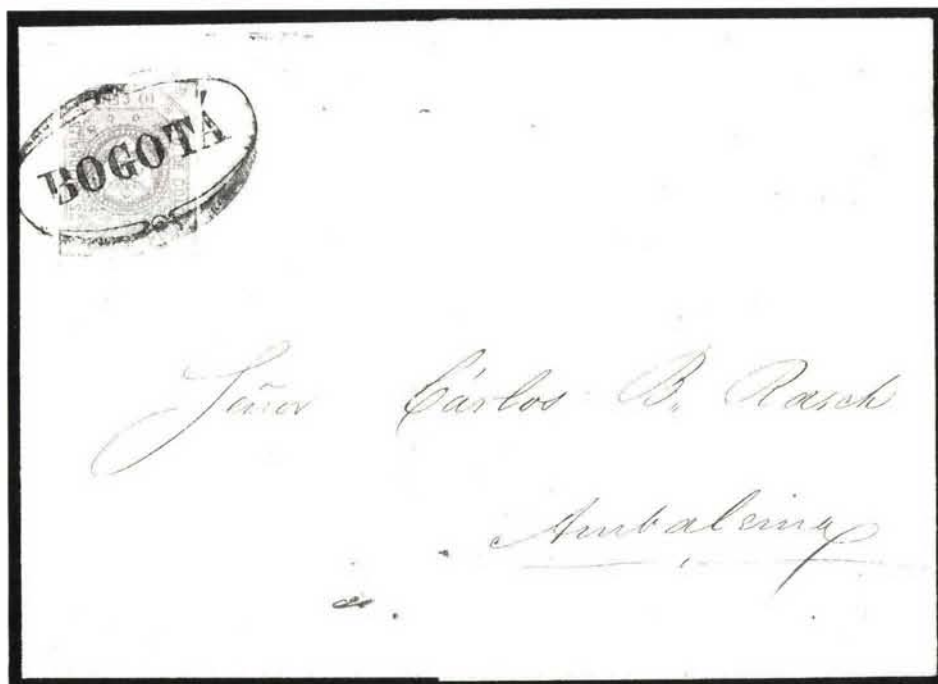 BOGOTÁ
Señor Cárlos B. Rasch
Ambalema